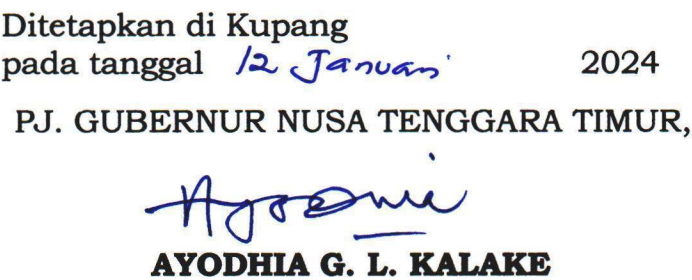 Ditetapkan di Kupang
pada tanggal 12 Januari 2024
PJ. GUBERNUR NUSA TENGGARA TIMUR,
Ayodhia
AYODHIA G. L. KALAKE